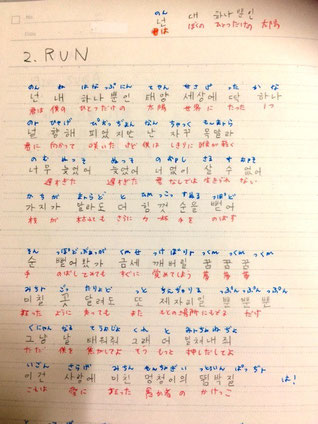 のん
넌 내 하나뿐인
君は ぼくの ひとつだけの 太陽
2. RUN
のん ね はなっぷにん てやん せさげ たっ かな
넌 내 하나뿐인 태양 세상에 딱 하나
君は 僕の ひとつだけの 太陽 世界に たった 1つ
널 향해 피었지만 난 자꾸 목말라
君に 向かって 咲いたけど 僕は しきりに 喉が渇く
のむ ぬっそ ぬっそ のおぷし さる すおぷそ
너무 늦었어 늦었어 너 없이 살 수 없어
遅すぎた 遅すぎた 君なしでは 生きられない
가지가 말라도 더 힘껏 손을 뻗어
枝が 枯れても さらに 力一杯 手を のばす
손 뻗어봤자 금세 깨버릴 꿈 꿈 꿈
手 のばしてみても すぐに 覚めてしまう 夢 夢 夢
미칠 듯 달려도 또 제자리일 뿐 뿐 뿐
狂ったように 走っても また もとの場所にもどる だけ
그냥 날 태워줘 그래 더 밀쳐내줘
ただ 僕を 燃やしてよ そう もっと 押しだしてよ
이건 사랑에 미친 멍청이의 뜀박질
これは 愛に 狂った 愚か者の かけっこ